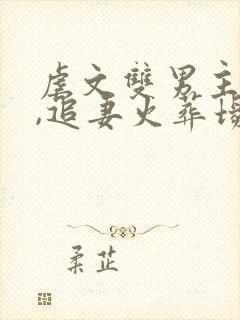 虐文雙男主
,追妻火葬場
柔芷